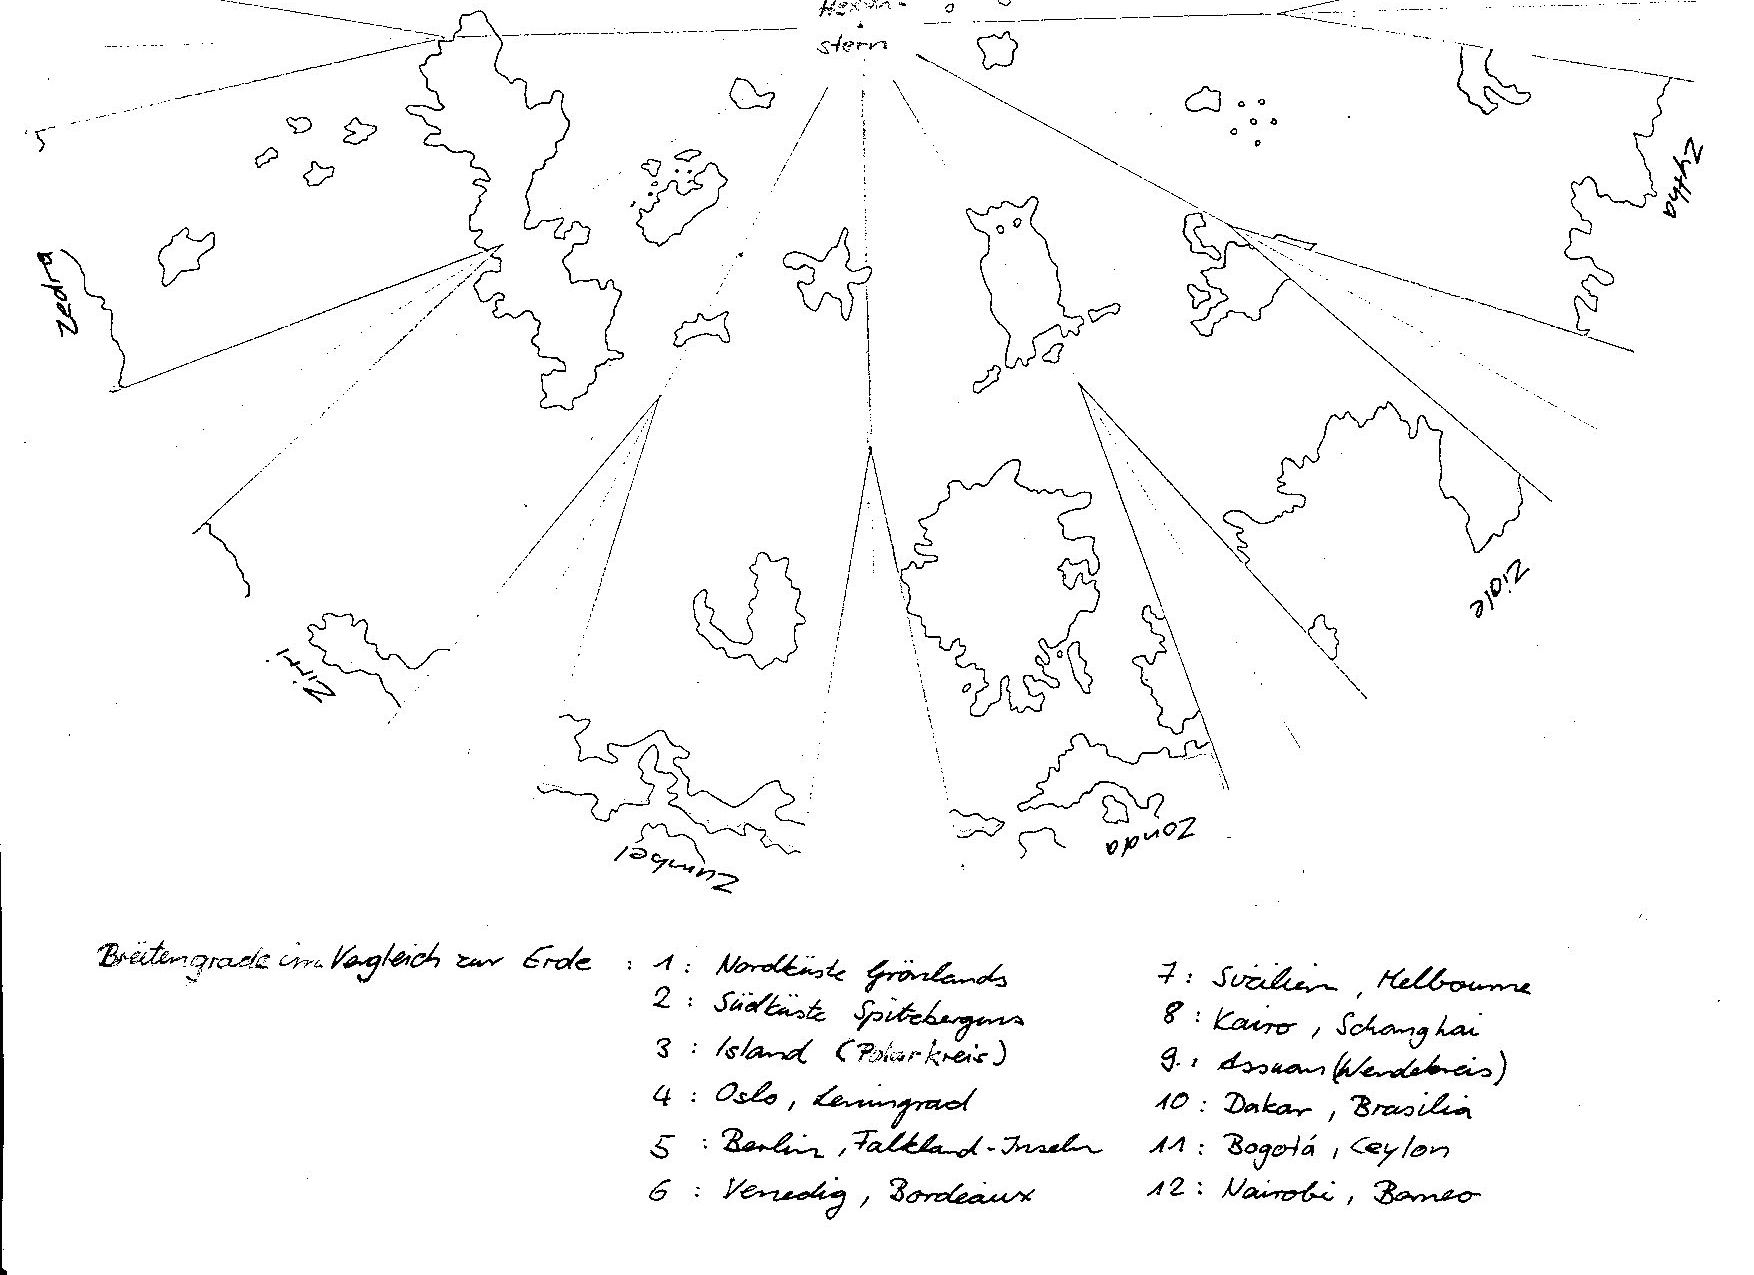 Hexen-
stern
Zytha
Zedra
Ziole
Zirri
Zonda
Zumbel
Breitengrade im Vergleich zur Erde : 1 : Nordküste Grönlands
2 : Südküste Spitzbergens
3 : Island (Polarkreis)
4 : Oslo, Leningrad
5 : Berlin, Falkland-Inseln
6 : Venedig, Bordeaux
7 : Sizilien, Melbourne
8 : Kairo, Schanghai
9 : Assuan (Wendekreis)
10 : Dakar, Brasilia
11 : Bogotá, Ceylon
12 : Nairobi, Borneo